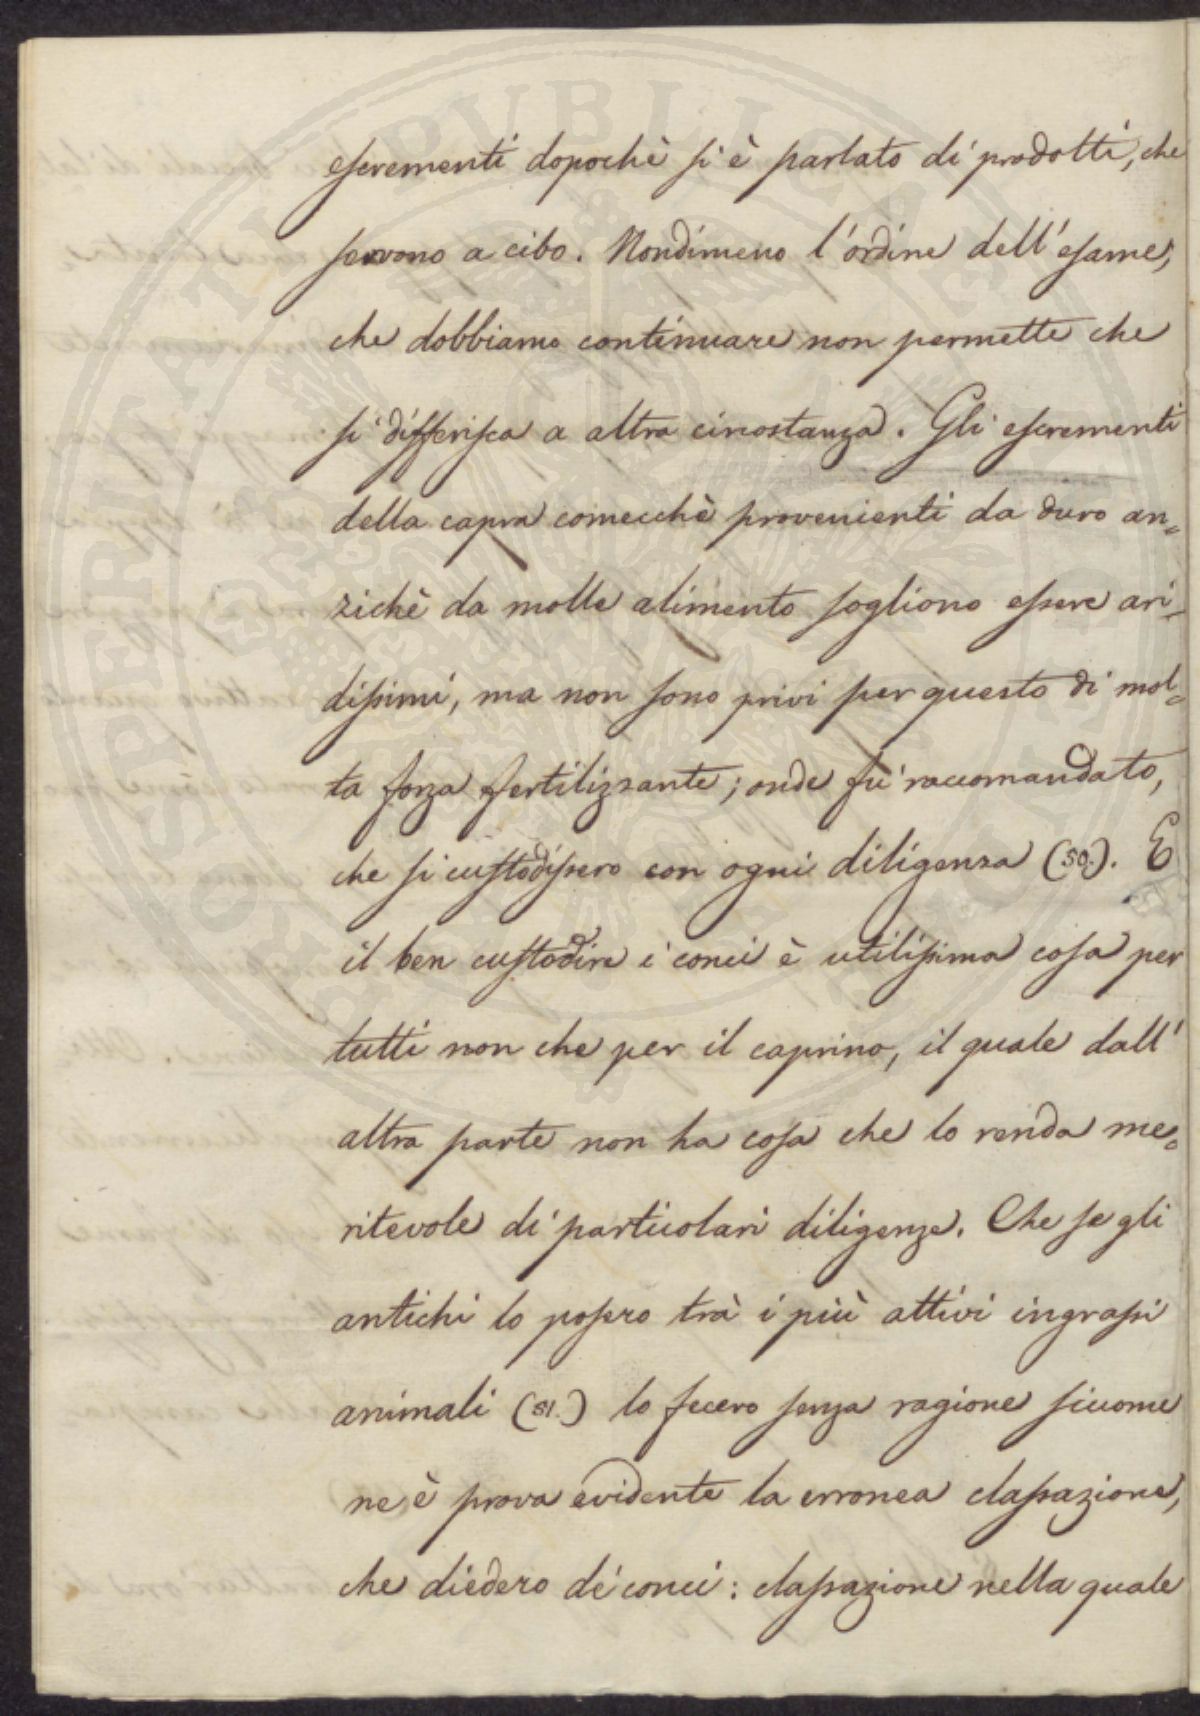 escrementi dopochè si è parlato di prodotti, che
servono a cibo. Nondimeno l'ordine dell'esame,
che dobbiamo continuare non permette che
si differisca a altra circostanza. Gli escrementi
della capra comecchè provenienti da duro an=
zichè da molle alimento sogliono essere ari=
dissimi, ma non sono privi per questo di mol=
ta forza fertilizzante; onde fù raccomandato,
che si custodissero con ogni diligenza (50.). E
il ben custodire i conci è utilissima cosa per
tutti non che per il caprino, il quale dall'
altra parte non ha cosa che lo renda me=
ritevole di particolari diligenze. Che se gli
antichi lo posero trà i più attivi ingrassi
animali (51.) lo fecero senza ragione siccome
ne è prova evidente la erronea classazione,
che diedero de' conci: classazione nella quale